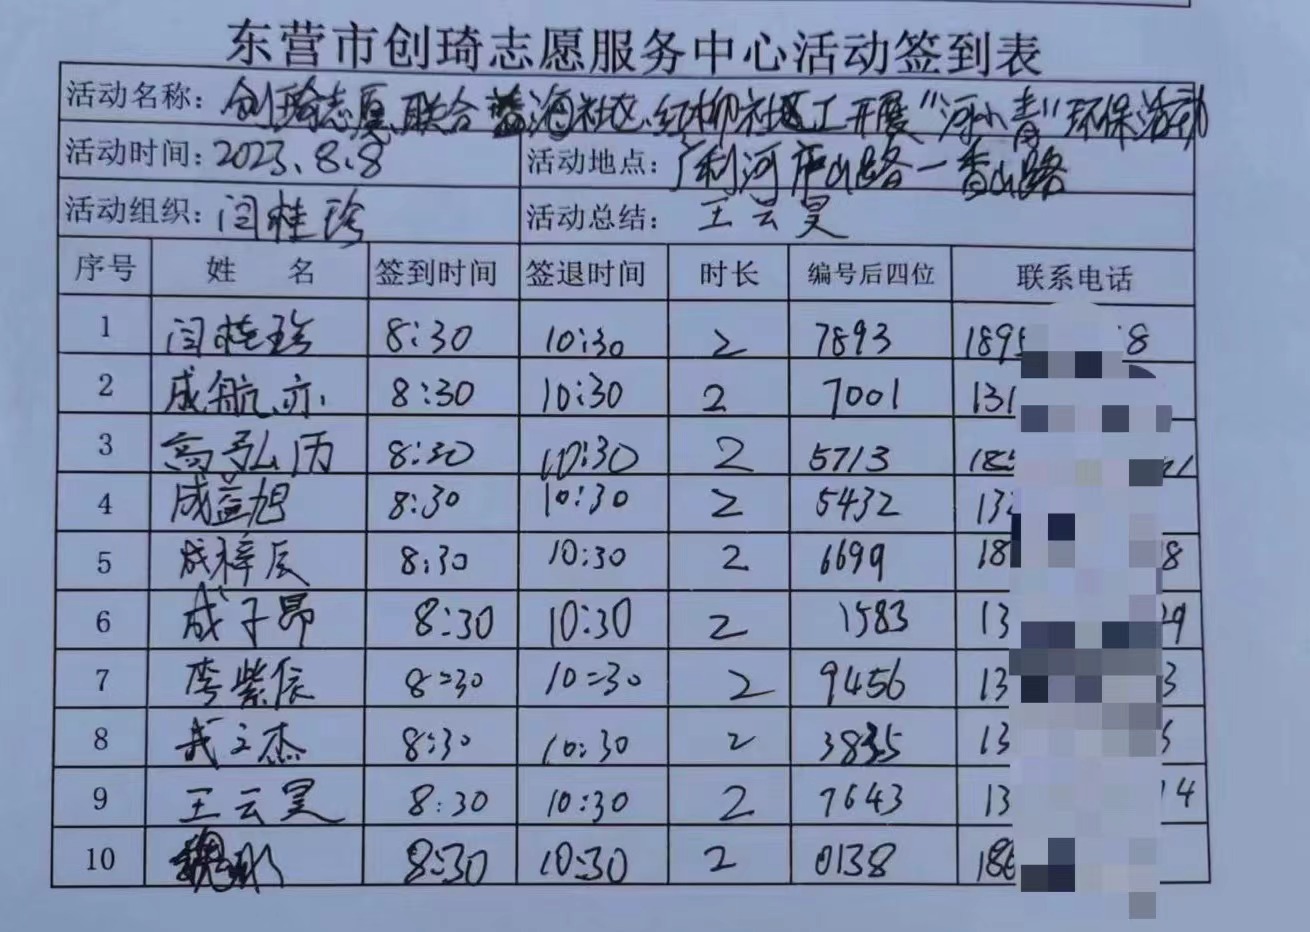 东营市创琦志愿服务中心活动签到表
活动名称：创琦志愿联合蓝海社区、红柳社区工开展“河小青”环保活动
活动时间：2023.8.8 活动地点：广利河庐山路一香山路
活动组织：闫桂珍 活动总结：王云昊
序号 姓 名 签到时间 签退时间 时长 编号后四位 联系电话
1 闫桂珍 8:30 10:30 2 7893 1895 8
2 成航亦 8:30 10:30 2 7001 131
3 高弘历 8:30 10:30 2 5713 185 21
4 成益旭 8:30 10:30 2 5432 132
5 成梓辰 8:30 10:30 2 6699 18 8
6 成子昂 8:30 10:30 2 1583 13 29
7 李紫辰 8:30 10:30 2 9456 13 3
8 武文杰 8:30 10:30 2 3835 13 5
9 王云昊 8:30 10:30 2 7643 13 14
10 8:30 10:30 2 0138 186